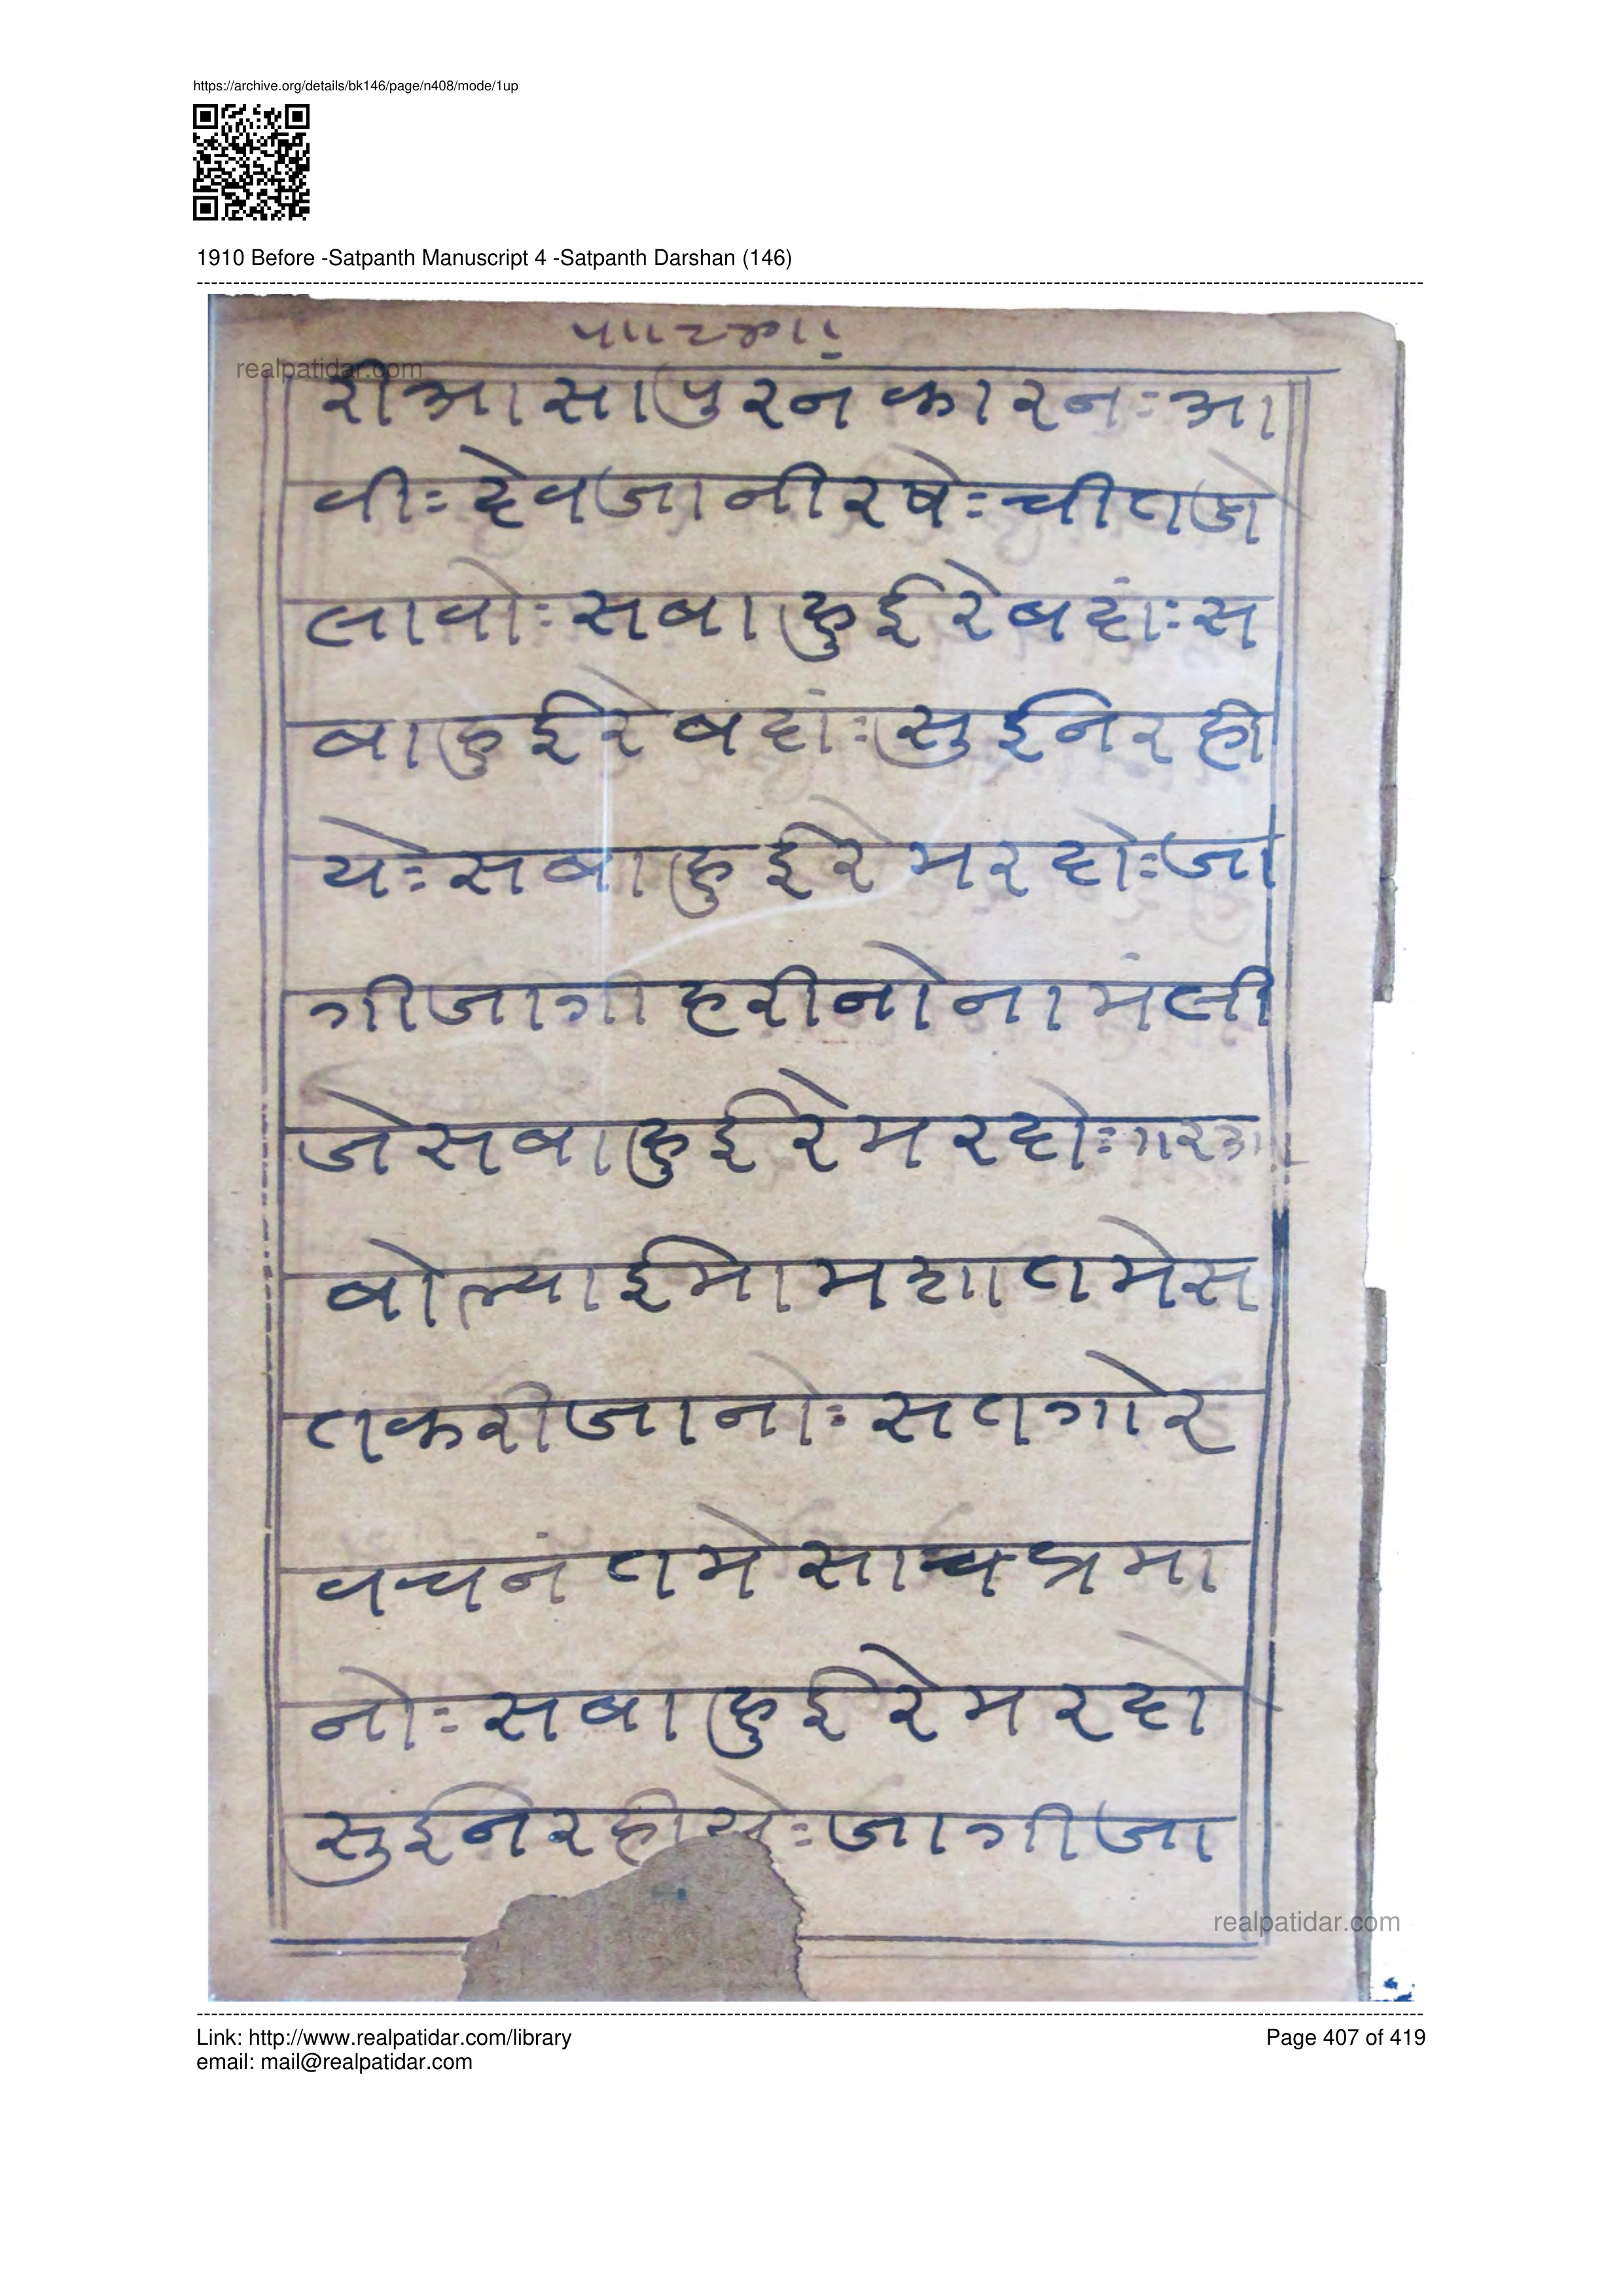 https://archive.org/details/bk146/page/n408/mode/1up
1910 Before -Satpanth Manuscript 4 -Satpanth Darshan (146)
realpatidar.com
री आ सा पुर नं का र नः आ
वीः देव जा नी र षेः ची त ज
ला वोः स बा हु ई रे ब दांः स
बा हु ई रे ब दांः सु ई नि र ही
येः स बा हु ई रे म र दोः जा
गी जा गी ह री नो ना मं ली
जे स बा हु ई रे म र दोः
बो ल्या ई मा म शा त मे स
त क री जा नोः स त गो र
व च नं त मे सा च प्र मा
नोः स बा हु ई रे म र दो
सु ई नि र ही येः जा गी जा
realpatidar.com
Link: http://www.realpatidar.com/library
Page 407 of 419
email: mail@realpatidar.com